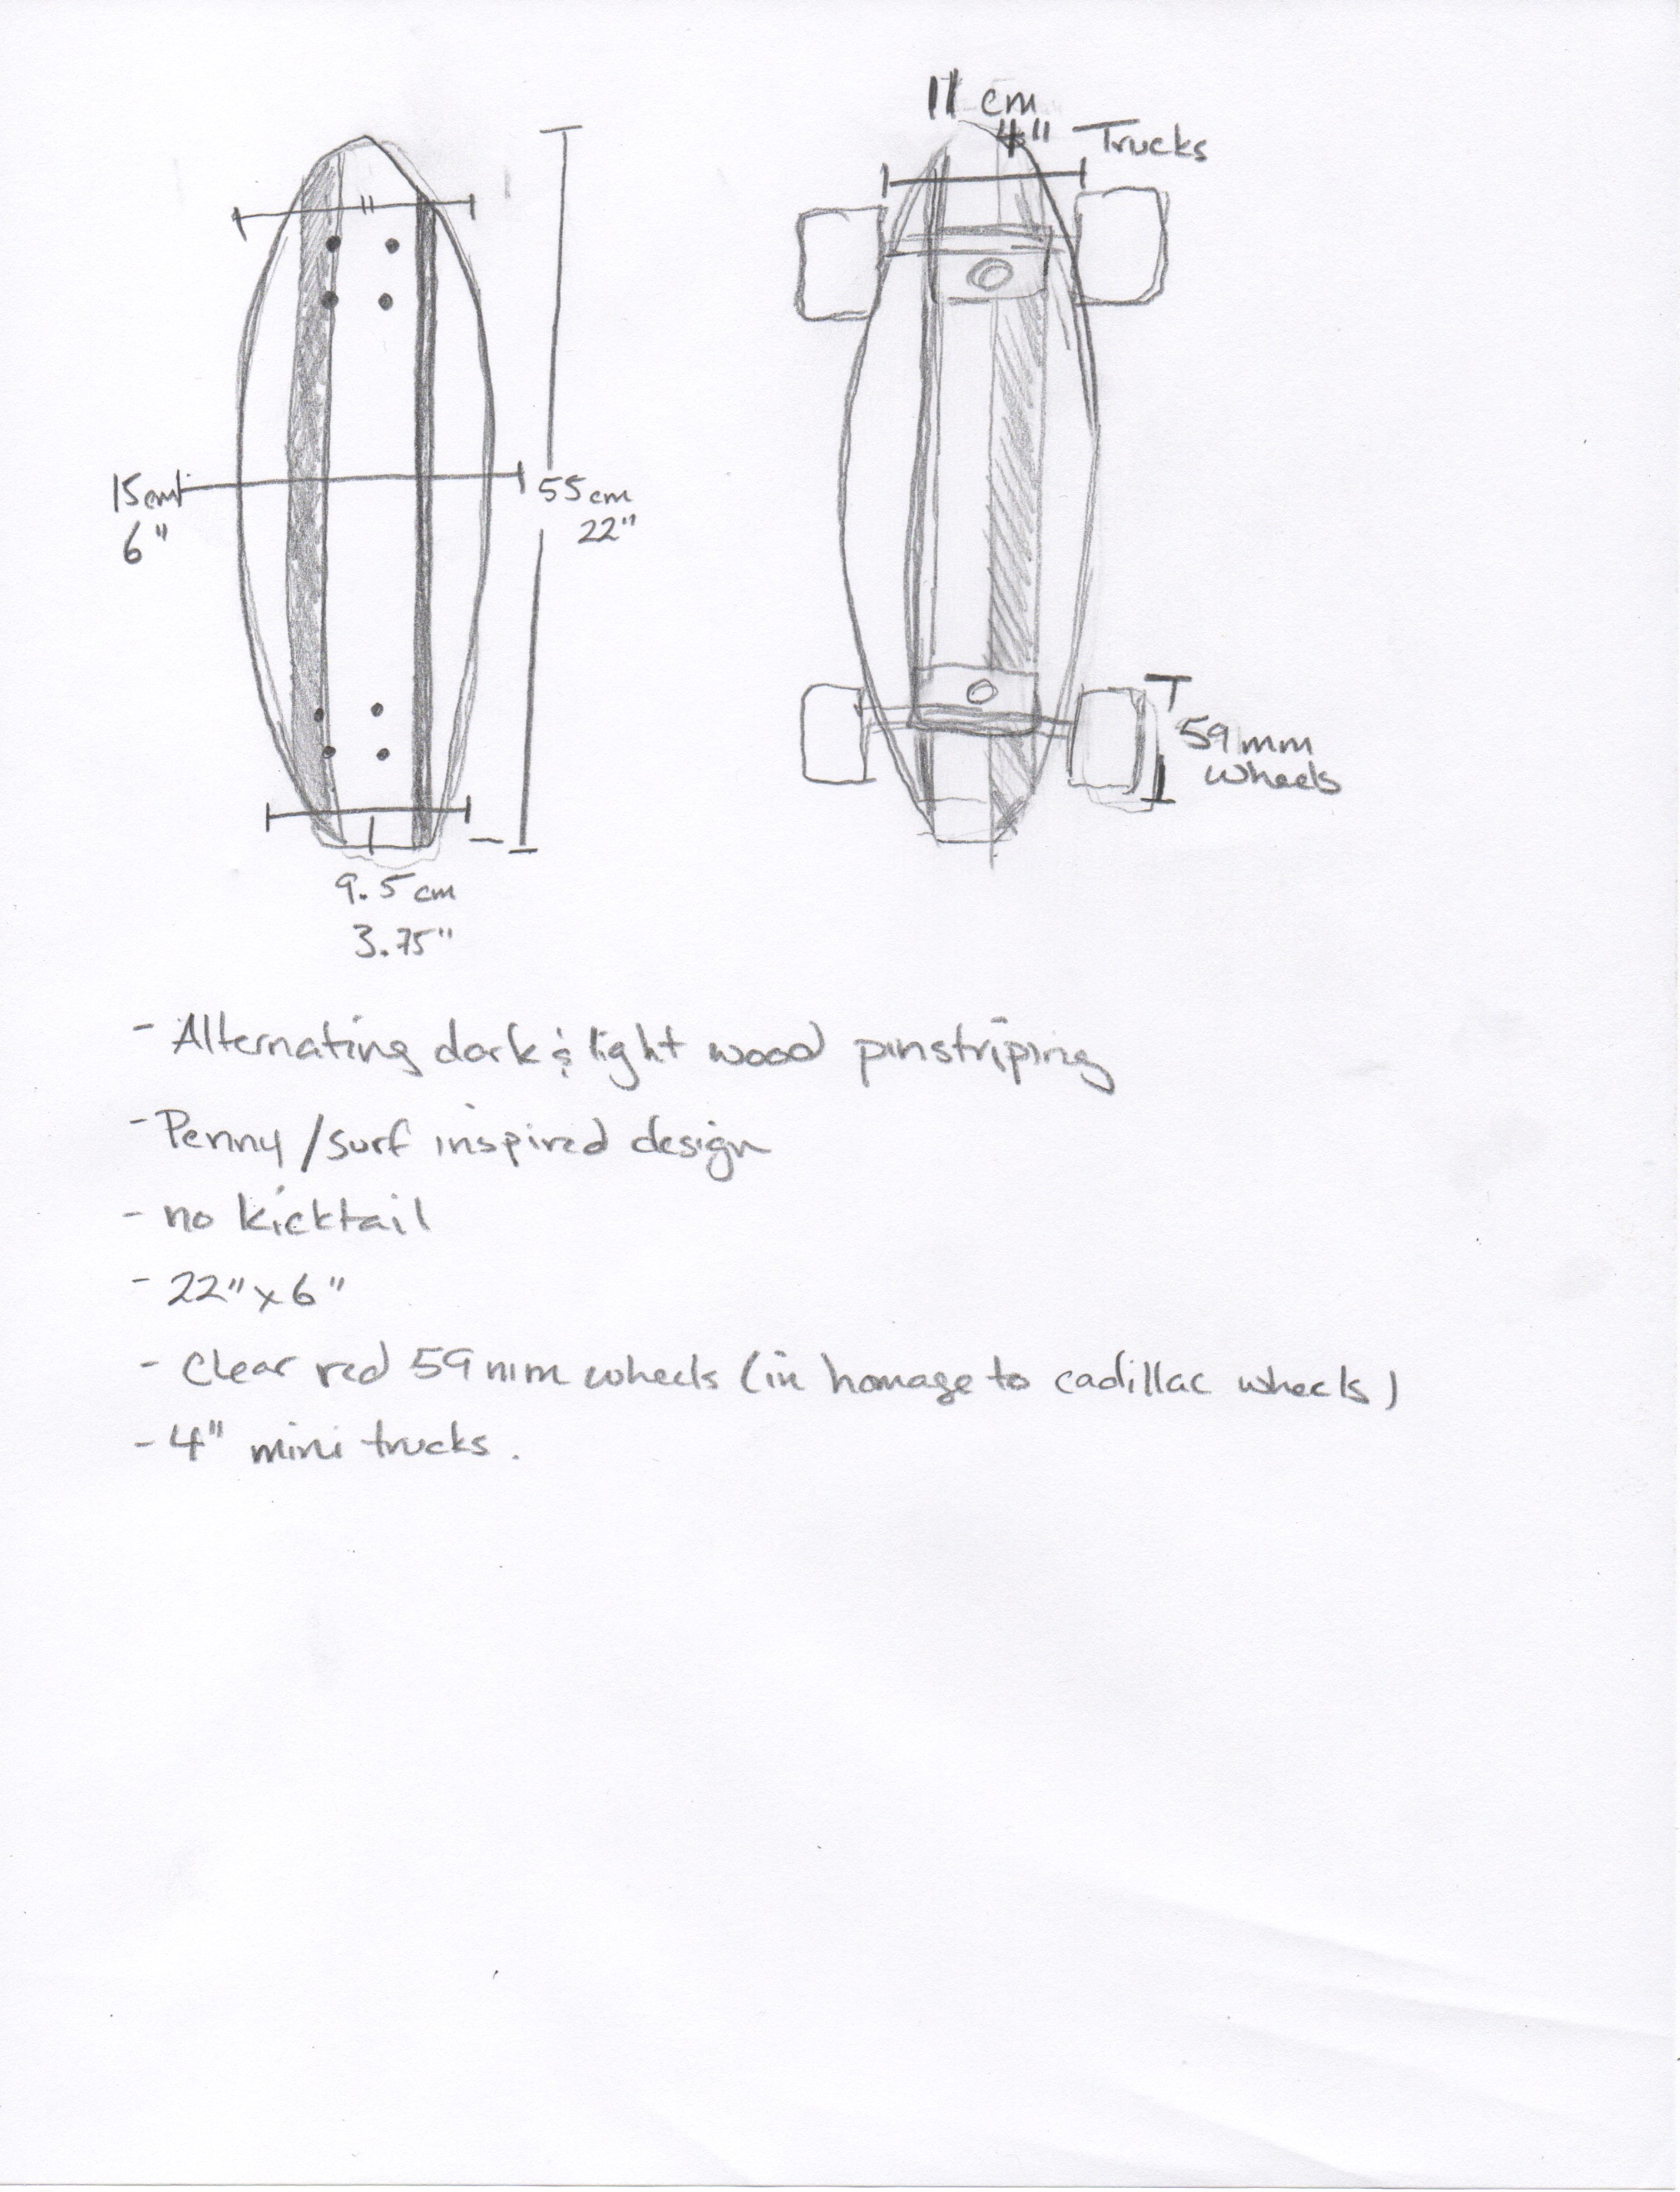 11 cm
4" Trucks
15cm
6"
55cm
22"
59mm
wheels
9.5cm
3.75"
- Alternating dark & light wood pinstriping
- Penny/surf inspired design
- no kicktail
- 22" x 6"
- Clear red 59mm wheels (in homage to cadillac wheels)
- 4" mini trucks.